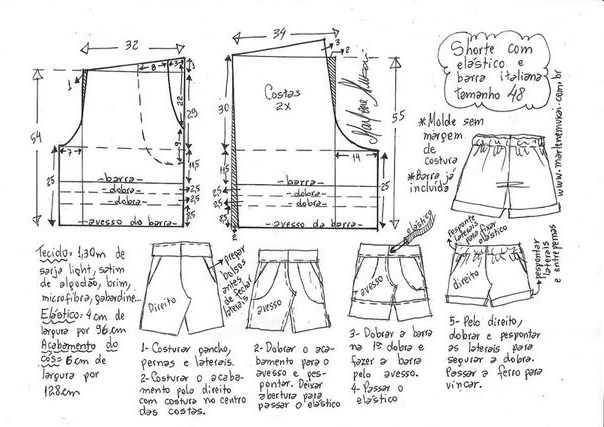 32
8
3
1
22
29
9
54
7
11,5
25
2,5
2,5
2,5
barra
dobra
dobra
avesso da barra
34
3
2
Costas
2X
30
55
14
11,5
25
2,5
2,5
2,5
barra
dobra
dobra
avesso da barra
2
Marlene Mukai
Shorte com
elástico e
barra italiana
tamanho 48
*Molde sem
margem
de
costura
*Barra já
incluida
www.marlenemukai.com.br
Tecido: 1,30m de
sarja light, satim
de algodão, brim,
microfibra, gabardine...
Elástico: 4 cm de
largura por 96 cm
Acabamento do
cós = 6 cm de
largura por
128 cm
Direito
pregar
bolsos
antes
de fechar
laterais
1- Costurar gancho,
pernas e laterais.
2- Costurar o acaba-
mento pelo direito
com costura no centro
das costas.
avesso
2- Dobrar o aca-
bamento para o
avesso e pes-
pontar. Deixar
abertura para
passar o elástico
elástico
avesso
3- Dobrar a barra
na 1ª dobra e
fazer a barra
pelo avesso.
4- Passar o
elástico
Pesponte
laterais
para fixar
elástico
direito
pespontar
laterais
e entrepernas
5- Pelo direito,
dobrar e pespontar
as laterais para
segurar a dobra.
Passar a ferro para
vincar.